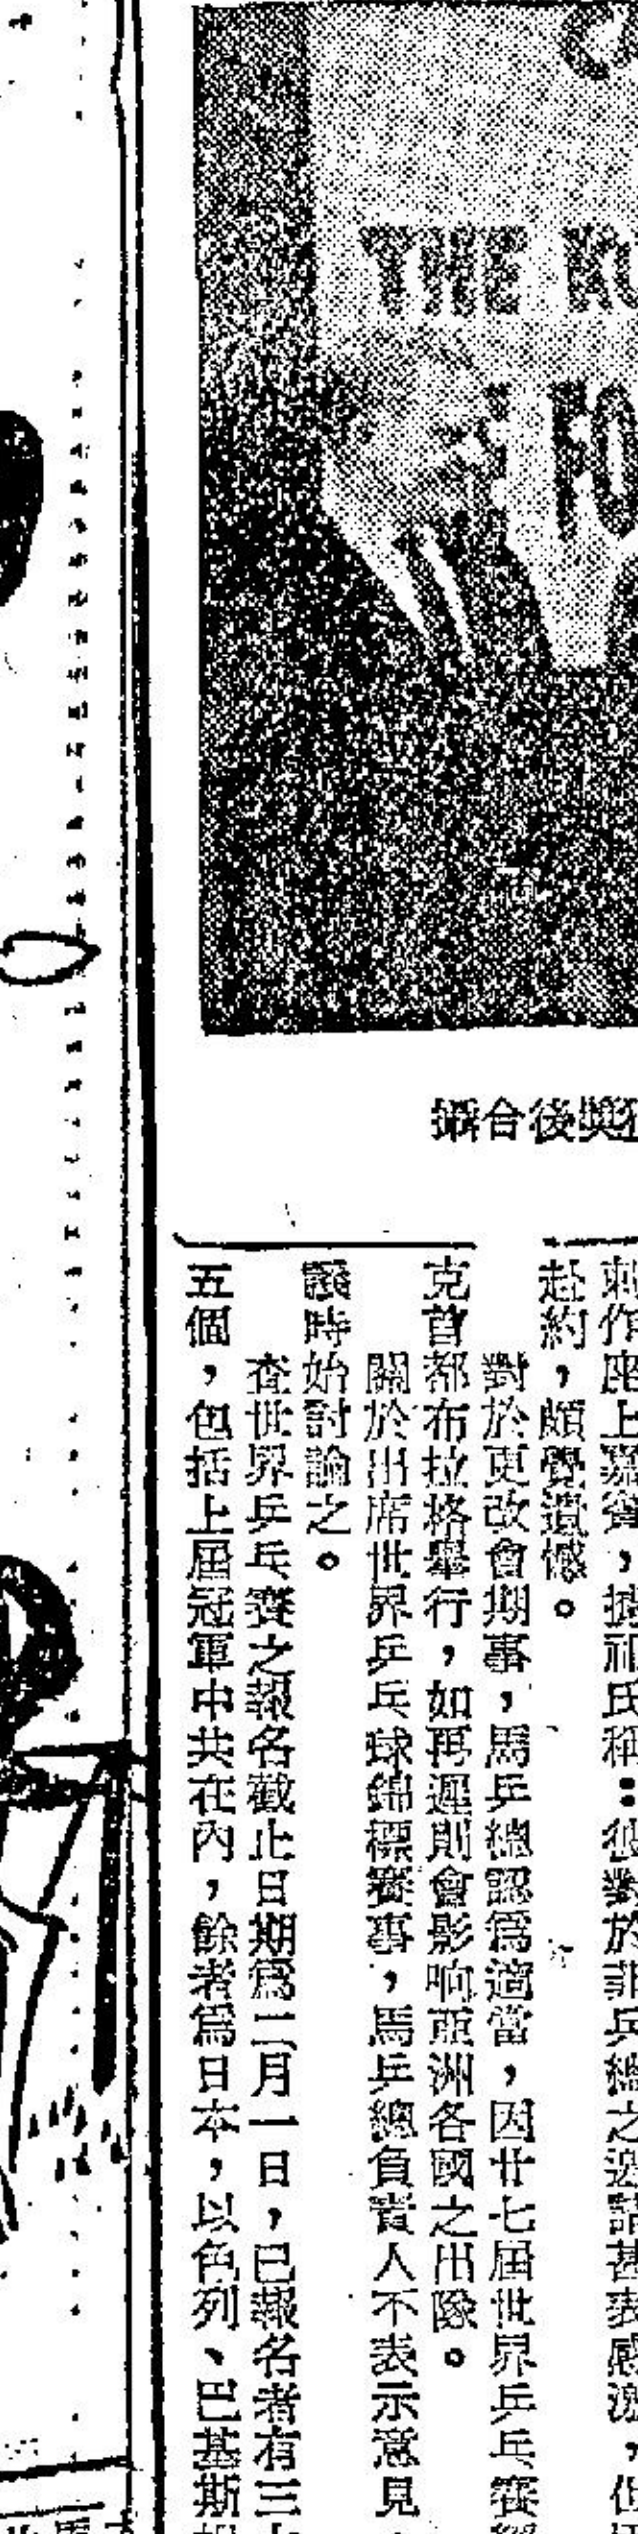 THE
FO
攝合後獎
刺作座上嘉賓，據祁氏稱：彼對於菲乒總之邀請甚表感激，但
赴約，頗覺遺憾。
對於更改會期事，馬乒總認爲適當，因廿七屆世界乒乓賽
克首都布拉格舉行，如再遲則會影响亞洲各國之出隊。
關於出席世界乒乓球錦標賽事，馬乒總負責人不表示意見，
議時始討論之。
查世界乒乓賽之報名截止日期爲二月一日，已報名者有三十
五個，包括上屆冠軍中共在內，餘者爲日本，以色列、巴基斯